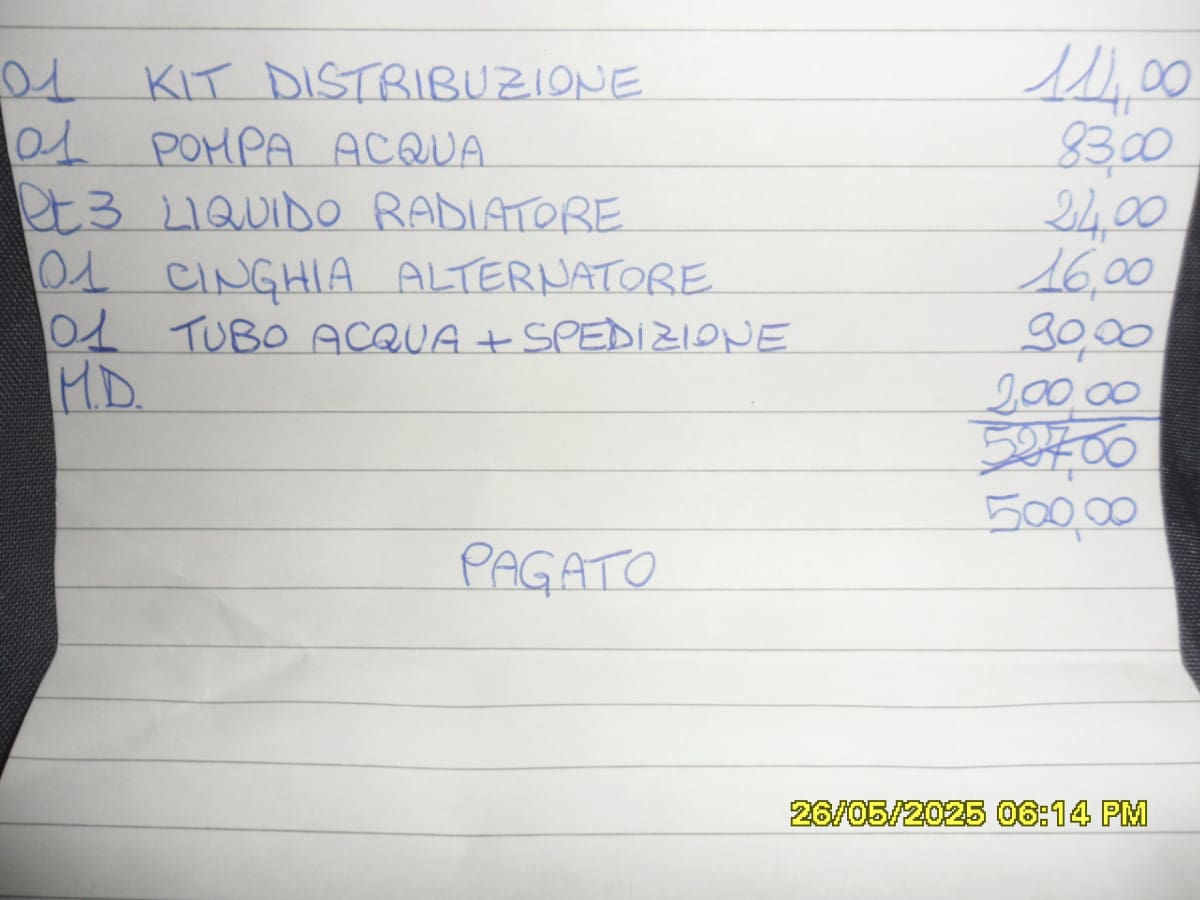 01 KIT DISTRIBUZIONE 114,00
01 POMPA ACQUA 83,00
lt 3 LIQUIDO RADIATORE 24,00
01 CINGHIA ALTERNATORE 16,00
01 TUBO ACQUA + SPEDIZIONE 90,00
M.D. 200,00
527,00
500,00
PAGATO
26/05/2025 06:14 PM